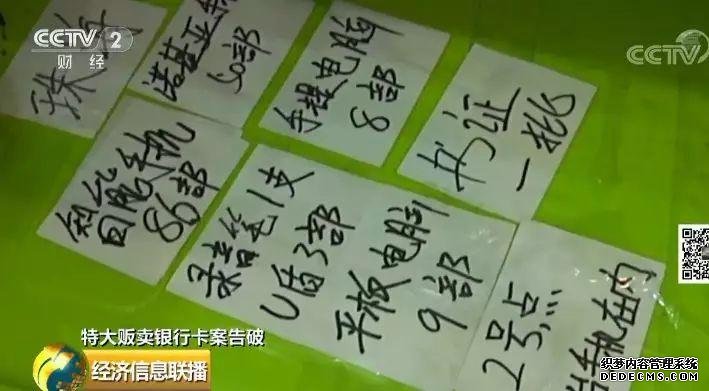 CCTV 2
财经
CCTV
诺基亚
60部
手提电脑
8部
书证
一批
智能手机
86部
录音笔1支
U盾3部
平板电脑
9部
2号点
手机在内
特大贩卖银行卡案告破
经济信息联播
织梦内容管理系统
DEDECMS.COM